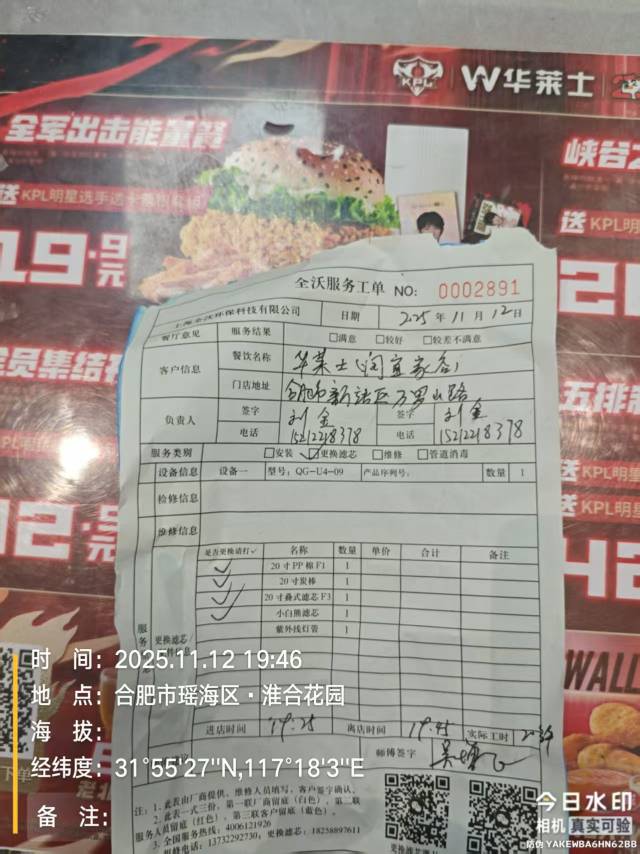 KPL W华莱士
全军出击能量餐
送 KPL明星选手送
19.9元
峡谷
送 KPL明
五排
送 KPL明星
送 KPL明星
WALL
全沃服务工单 NO: 0002891
上海全沃环保科技有限公司 日期 2025年11月12日
餐厅意见 服务结果 □满意 □较好 □较差不满意
客户信息 餐饮名称 华莱士(闲宜家店)
门店地址 合肥市新站区万罗山路
负责人 签字 刘金 签字 刘金
电话 15212218378 电话 15212218378
服务类别 □安装 ☑更换滤芯 □维修 □管道消毒
设备信息 设备一 型号: QG-U4-09 产品序列号: 数量 1
检修信息
维修信息
是否更换请打✓ 名称 数量 单价 合计 备注
✓ 20寸PP棉F1 1
✓ 20寸炭棒 1
✓ 20寸叠式滤芯F3 1
✓ 小白熊滤芯 1
紫外线灯管 1
更换滤芯/
进店时间 19:25 离店时间 19:45 实际工时 20分钟
师傅签字
注: 1. 此表由厂商提供, 维修人员填写, 客户签字确认。
2. 此表一式三份, 第一联厂商留底(白色), 第二联
服务人员留底(红色), 第三联客户留底(蓝色)。
3. 全国服务热线: 4006121926
维修电话: 13732292730; 更换滤芯: 18258897611
时 间: 2025.11.12 19:46
地 点: 合肥市瑶海区·淮合花园
海 拔:
经纬度: 31°55'27"N,117°18'3"E
备 注:
今日水印
相机 真实可验
防伪 YAKEWBA6HN62BB